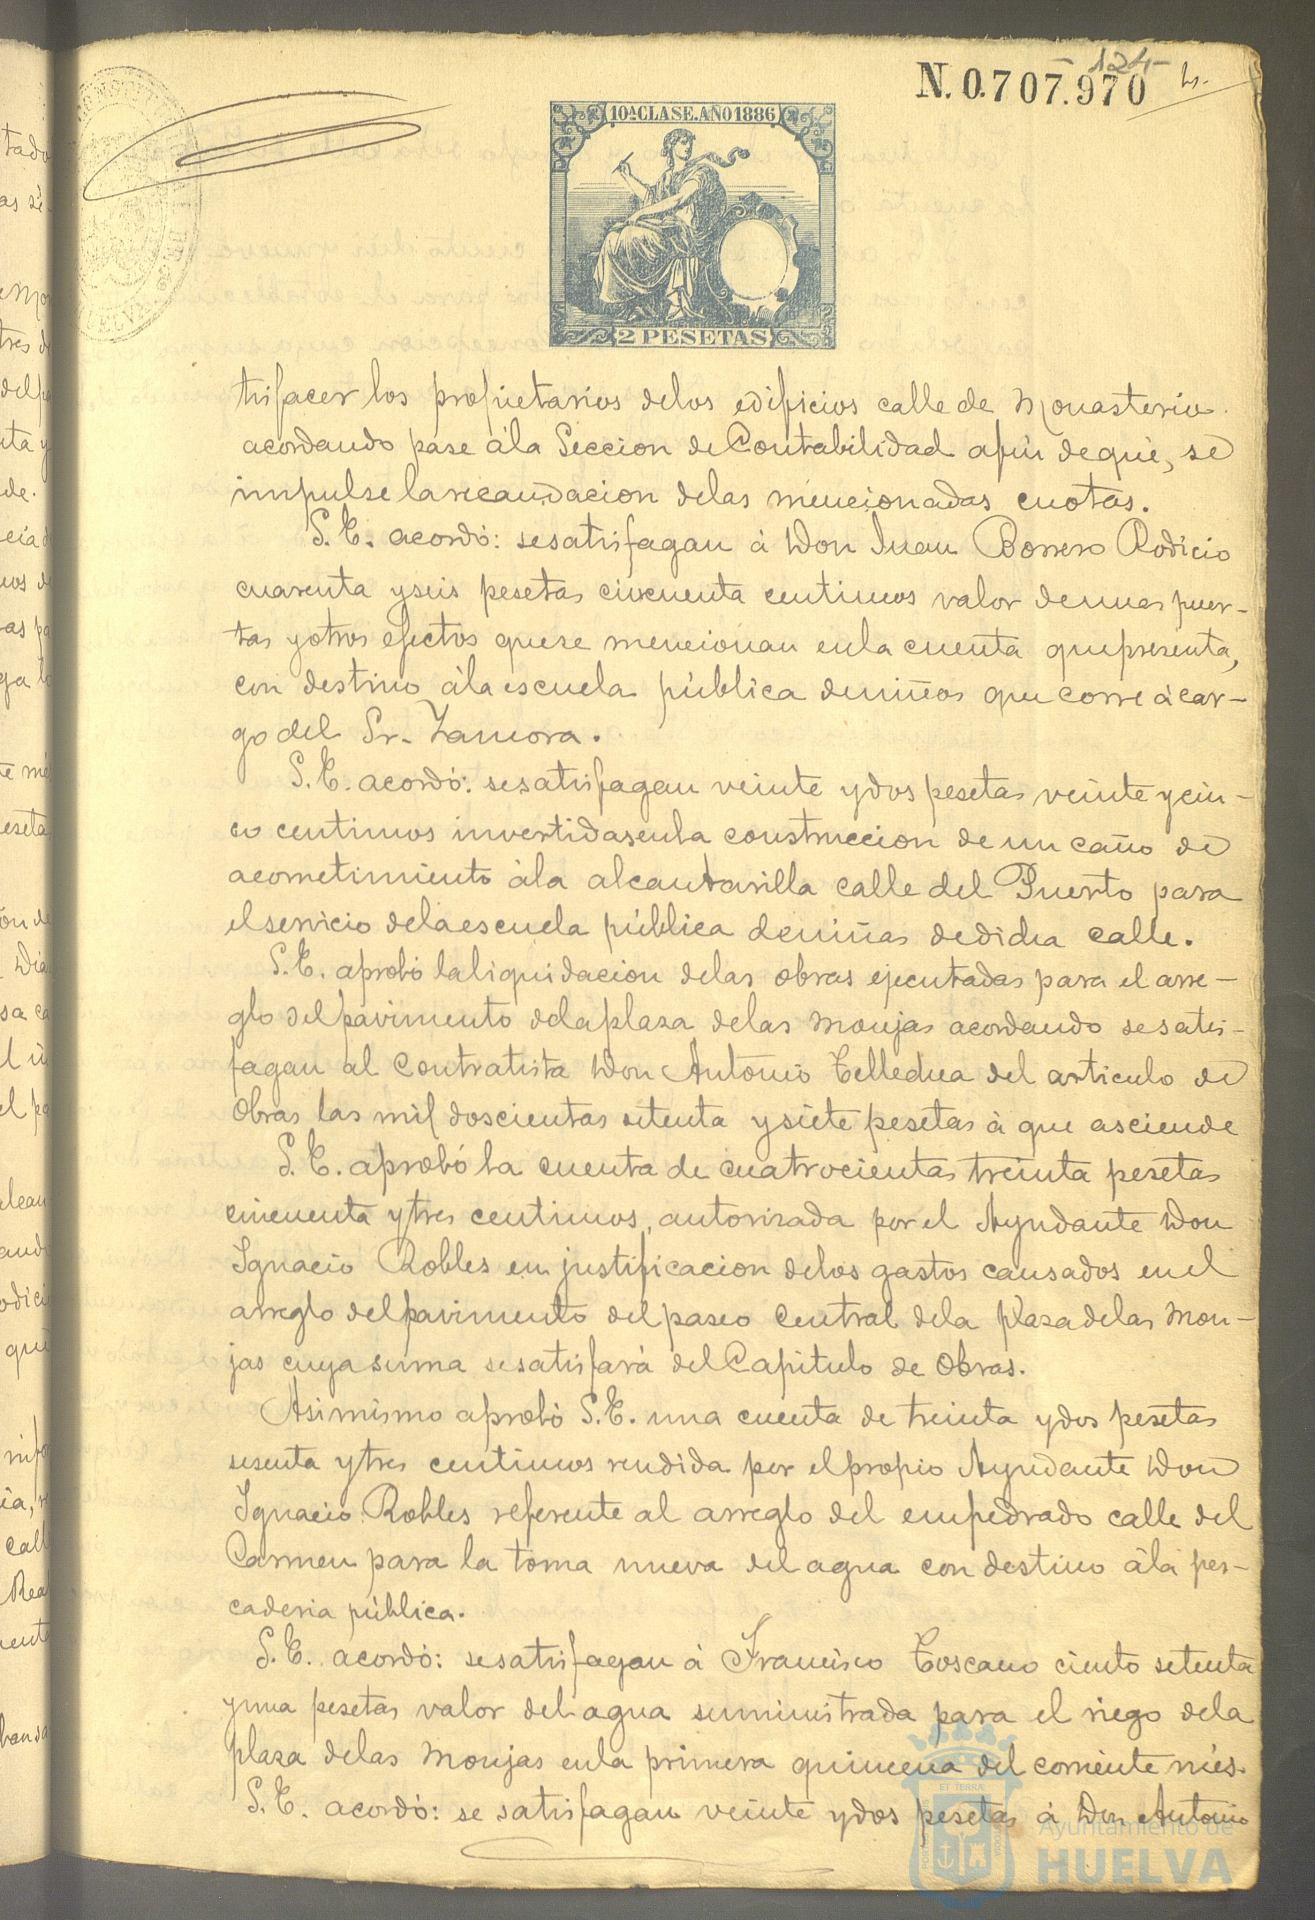 124-
N. 0.707.970
10ª CLASE. AÑO 1886
2 PESETAS
tisfacer los propietarios delos edificios calle de Monasterio.
acordando pase ála Seccion de Contabilidad afin de qué, sé
impulse la recaudacion delas mencionadas cuotas.
S.E. acordó: se satisfagan á Don Juan Borrero Rodicio
cuarenta y seis pesetas cincuenta centimos valor de unas puer-
tas y otros efectos que se mencionan en la cuenta que presenta,
con destino ála escuela pública de niños que corre á car-
go del Sr. Zamora.
S.E. acordó: se satisfagan veinte y dos pesetas veinte y cin-
co centimos invertidas en la construccion de un caño de
acometimiento ála alcantarilla calle del Puerto para
el servicio dela escuela pública de niñas de dicha calle.
S.E. aprobó la liquidacion delas obras ejecutadas para el arre-
glo del pavimento dela plaza delas Monjas acordando se satis-
fagan al Contratista Don Antonio Tellechea del articulo de
Obras las mil doscientas setenta y siete pesetas á que asciende
S.E. aprobó la cuenta de cuatrocientas treinta pesetas
cincuenta y tres centimos, autorizada por el Ayudante Don
Ignacio Robles en justificacion delos gastos causados en el
arreglo del pavimento del paseo central dela plaza delas Mon-
jas cuya suma se satisfará del Capitulo de Obras.
Asimismo aprobó S.E. una cuenta de treinta y dos pesetas
sesenta y tres centimos rendida por el propio Ayudante Don
Ignacio Robles referente al arreglo del empedrado calle del
Carmen para la toma nueva del agua con destino álá pes-
caderia pública.
S.E. acordó: se satisfagan á Francisco Toscano ciento setenta
y una pesetas valor del agua suministrada para el riego dela
plaza delas Monjas en la primera quincena del corriente més.
S.E. acordó: se satisfagan veinte y dos pesetas á Don Antonio
Ayuntamiento de
HUELVA